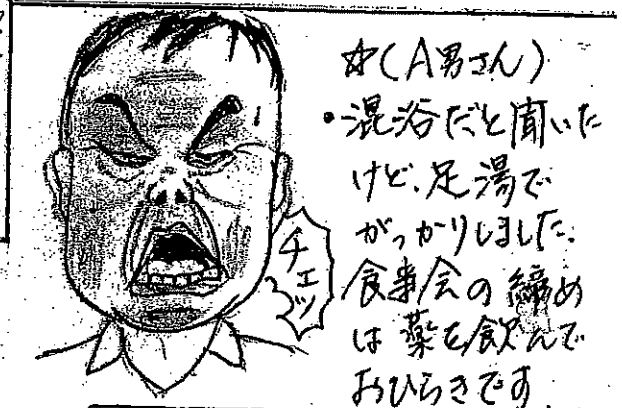 ☆(A男さん)
・混浴だと聞いた
けど、足湯で
がっかりしました。
食事会の締め
は薬を飲んで
おひらきです
チェッ